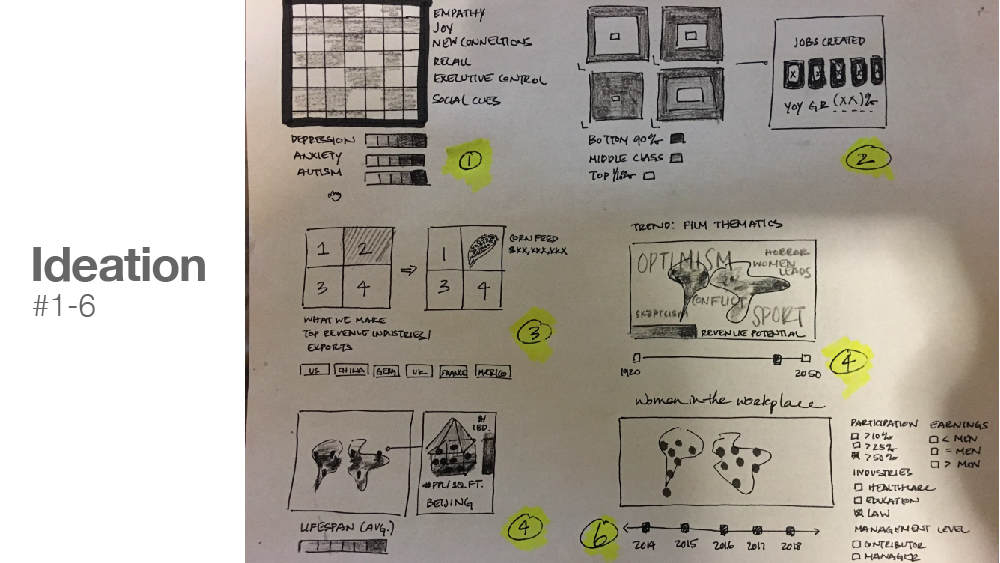 Ideation
#1-6
EMPATHY
JOY
NEW CONNECTIONS
RECALL
EXECUTIVE CONTROL
SOCIAL CUES
DEPRESSION
ANXIETY
AUTISM
1
JOBS CREATED
X X X X X
YOY GR (XX)%
BOTTOM 90%
MIDDLE CLASS
TOP 1%
2
1 2
3 4
1
3 4
CORN FEED
$XX,XXX,XXX
WHAT WE MAKE
TOP REVENUE INDUSTRIES/
EXPORTS
US CHINA UK FRANCE MEXICO
3
TREND: FILM THEMATICS
OPTIMISM
HORROR
WOMEN
LEADS
CONFLICT
SKEPTICISM
SPORT
REVENUE POTENTIAL
1920
2050
4
#PPL/SQ FT.
BEIJING
LIFESPAN (AVG.)
4
women in the workplace
PARTICIPATION
>10%
>25%
>50%
EARNINGS
< MEN
= MEN
> MEN
INDUSTRIES
HEALTHCARE
EDUCATION
LAW
MANAGEMENT LEVEL
CONTRIBUTOR
MANAGER
2014 2015 2016 2017 2018
6